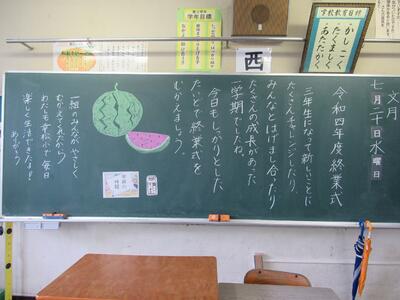 学校教育目標
かしこく
たくましく
あたたかく
学年目標
西
文月
七月二十日水曜日
令和四年度終業式
三年生になって新しいことに
たくさんチャレンジしたり、
みんなとはげまし合ったり
たくさんの成長があった
一学期でしたね。
今日もしっかりとした
たいどで終業式を
むかえましょう。
一組のみんなが やさしく
むかえてくれたから
わたしも幸松小で毎日
楽しく生活できたよ!!
ありがとう